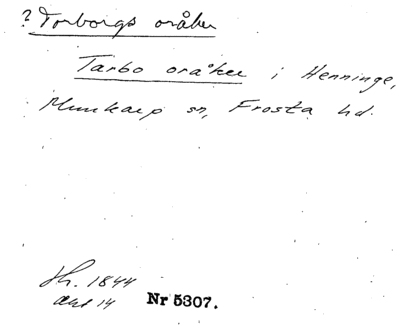 ? Torborgs oråker
Tarbo oråker i Henninge,
Munkarp sn, Frosta hd.
Sk. 1844
akt 14 Nr 5307.